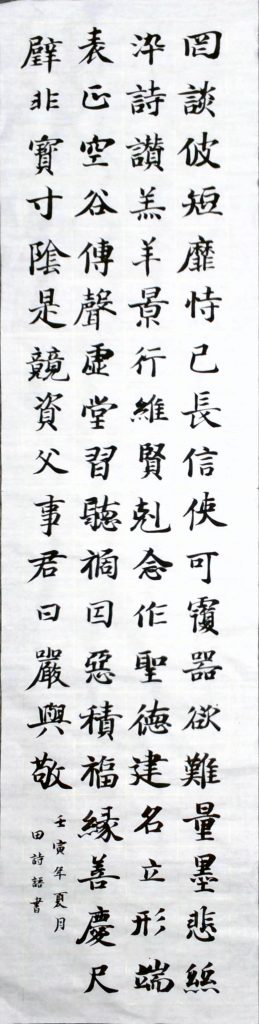 罔談彼短靡恃己長信使可覆器欲難量墨悲絲
染詩讚羔羊景行維賢剋念作聖德建名立形端
表正空谷傳聲虛堂習聽禍因惡積福緣善慶尺
璧非寶寸陰是競資父事君曰嚴與敬
壬寅年夏月
田詩語書